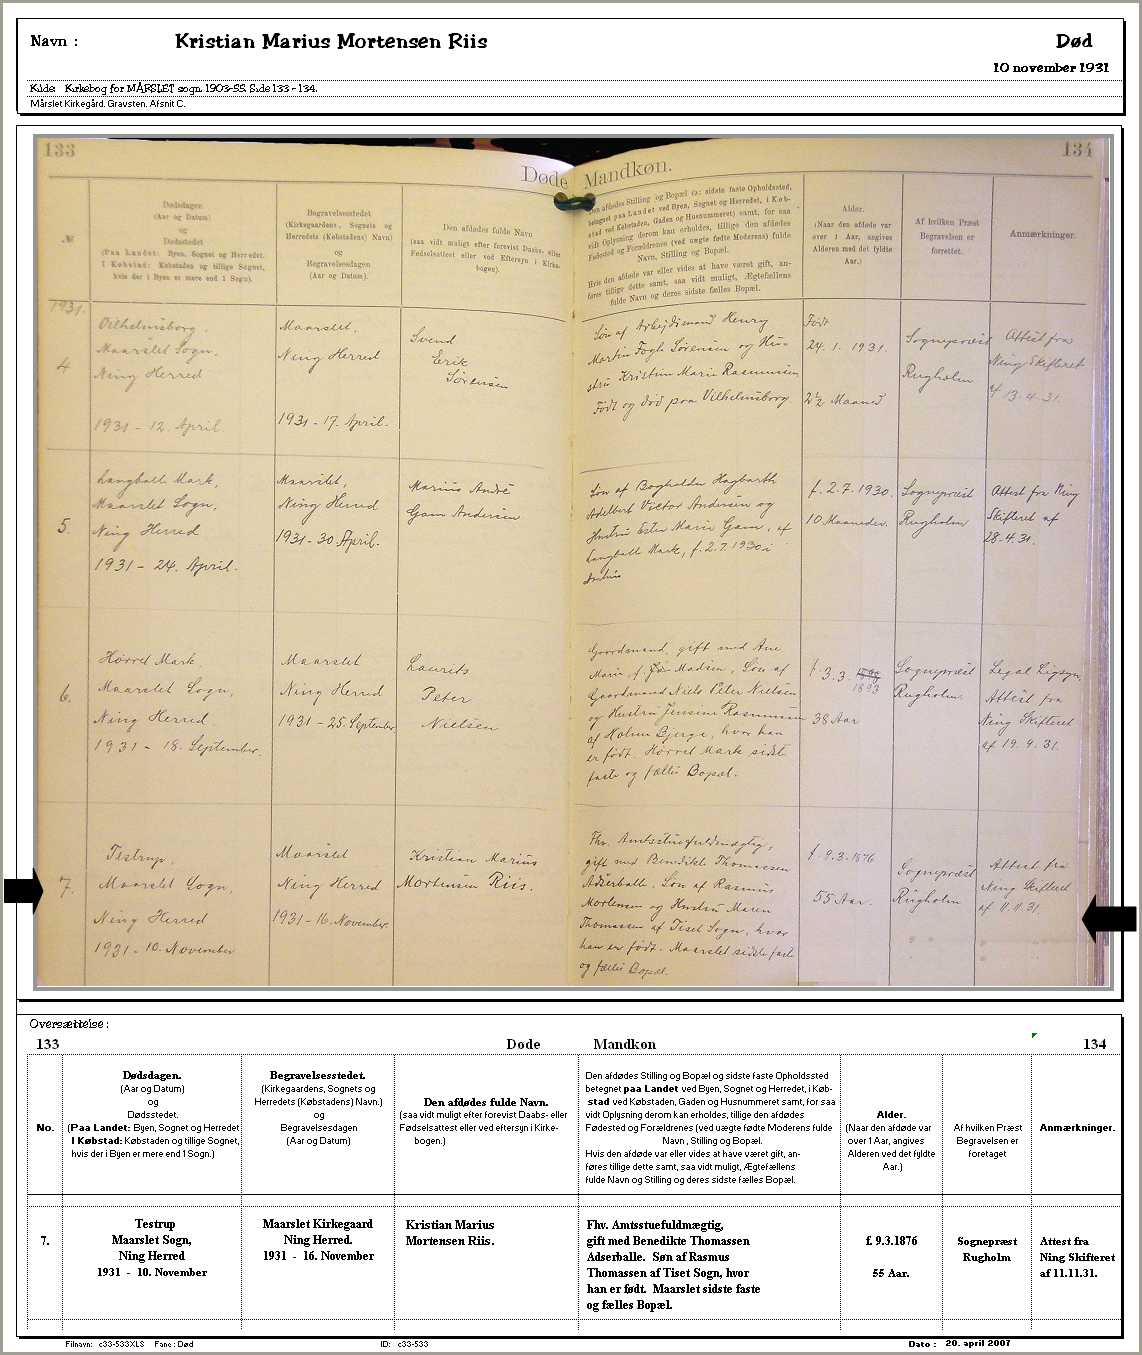 Navn :
Kristian Marius Mortensen Riis
Død
10 november 1931
Kilde: Kirkebog for MÅRSLET sogn. 1903-55. Side 133 - 134.
Mårslet Kirkegård. Gravsten. Afsnit C.
133
134
Døde Mandkøn.
№
Dødsdagen
(Aar og Datum)
og
Dødsstedet
(Paa Landet: Byen, Sognet og Herredet.
I Købstad: Købstaden og tillige Sognet,
hvis der i Byen er mere end 1 Sogn).
Begravelsesstedet
(Kirkegaardens, Sognets og
Herredets (Købstadens) Navn)
og
Begravelsesdagen
(Aar og Datum).
Den afdødes fulde Navn
(saa vidt muligt efter forevist Daabs- eller
Fødselsattest eller ved Eftersyn i Kirke-
bogen).
Den afdødes Stilling og Bopæl (ɔ: sidste faste Opholdssted,
betegnet paa Landet ved Byen, Sognet og Herredet, i Køb-
stad ved Købstaden, Gaden og Husnummeret) samt, for saa
vidt Oplysning derom kan erholdes, tillige den afdødes
Fødested og Forældrene (ved uægte fødte Moderens) fulde
Navn, Stilling og Bopæl.
Hvis den afdøde var eller vides at have været gift, an-
føres tillige dette samt, saa vidt muligt, Ægtefællens
fulde Navn og deres sidste fælles Bopæl.
Alder.
(Naar den afdøde var
over 1 Aar, angives
Alderen med det fyldte
Aar.)
Af hvilken Præst
Begravelsen er
forrettet.
Anmærkninger.
1931.
4
Vilhelmsborg.
Maarslet Sogn,
Ning Herred
1931 - 12. April
Maarslet,
Ning Herred
1931 - 17. April.
Svend
Erik
Sørensen
Søn af Arbejdsmand Henry
Martin Fogh Sørensen og Hu-
stru Kristine Marie Rasmussen
Født og død paa Vilhelmsborg
Født
24. 1. 1931.
2½ Maaned
Sognepræst
Rugholm
Attest fra
Ning Skifteret
af 13.4.31.
5.
Langballe Mark,
Maarslet Sogn,
Ning Herred
1931 - 24. April.
Maarslet,
Ning Herred
1931 - 30. April.
Marius André
Gam Andersen
Søn af Bogholder Hagbarth
Adelbert Victor Andersen og
Hustru Ester Marie Gam, af
Langballe Mark, f. 2.7.1930 i
Aarhus
f. 2.7.1930.
10 Maaneder.
Sognepræst
Rugholm
Attest fra Ning
Skifteret af
28.4.31.
6.
Hørret Mark,
Maarslet Sogn,
Ning Herred
1931 - 18. September.
Maarslet
Ning Herred
1931 - 25. September
Laurits
Peter
Nielsen
Gaardmand, gift med Ane
Marie Madsen, Søn af
Gaardmand Niels Peter Nielsen
og Hustru Jensine Rasmussen
af Holme Bjerge, hvor han
er født. Hørret Mark sidste
faste og fælles Bopæl.
f. 3.3.
1893
38 Aar
Sognepræst
Rugholm.
Legal Ligsyn.
Attest fra
Ning Skifteret
af 19.9.31.
7.
Testrup,
Maarslet Sogn,
Ning Herred
1931 - 10. November
Maarslet
Ning Herred
1931 - 16. November.
Kristian Marius
Mortensen Riis.
Fhv. Amtsstuefuldmægtig,
gift med Benedikte Thomassen
Adserballe. Søn af Rasmus
Mortensen og Hustru Maren
Thomassen af Tiset Sogn, hvor
han er født. Maarslet sidste faste
og fælles Bopæl.
f. 9.3.1876
55 Aar.
Sognepræst
Rugholm
Attest fra
Ning Skifteret
af 11.11.31.
Oversættelse :
133
Døde
Mandkøn
134
No.
Dødsdagen.
(Aar og Datum)
og
Dødsstedet.
(Paa Landet: Byen, Sognet og Herredet
I Købstad: Købstaden og tillige Sognet,
hvis der i Byen er mere end 1 Sogn.)
Begravelsesstedet.
(Kirkegaardens, Sognets og
Herredets (Købstadens) Navn.)
og
Begravelsesdagen
(Aar og Datum)
Den afdødes fulde Navn.
(saa vidt muligt efter forevist Daabs- eller
Fødselsattest eller ved eftersyn i Kirke-
bogen.)
Den afdødes Stilling og Bopæl og sidste faste Opholdssted
betegnet paa Landet ved Byen, Sognet og Herredet, i Køb-
stad ved Købstaden, Gaden og Husnummeret samt, for saa
vidt Oplysning derom kan erholdes, tillige den afdødes
Fødested og Forældrene (ved uægte fødte Moderens fulde
Navn , Stilling og Bopæl.
Hvis den afdøde var eller vides at have været gift, an-
føres tillige dette samt, saa vidt muligt, Ægtefællens
fulde Navn og Stilling og deres sidste fælles Bopæl.
Alder.
(Naar den afdøde var
over 1 Aar, angives
Alderen ved det fyldte
Aar.)
Af hvilken Præst
Begravelsen er
foretaget
Anmærkninger.
7.
Testrup
Maarslet Sogn,
Ning Herred
1931 - 10. November
Maarslet Kirkegaard
Ning Herred.
1931 - 16. November
Kristian Marius
Mortensen Riis.
Fhv. Amtsstuefuldmægtig,
gift med Benedikte Thomassen
Adserballe. Søn af Rasmus
Thomassen af Tiset Sogn, hvor
han er født. Maarslet sidste faste
og fælles Bopæl.
f. 9.3.1876
55 Aar.
Sognepræst
Rugholm
Attest fra
Ning Skifteret
af 11.11.31.
Filnavn: c33-533XLS Fane : Død
ID: c33-533
Dato : 20. april 2007